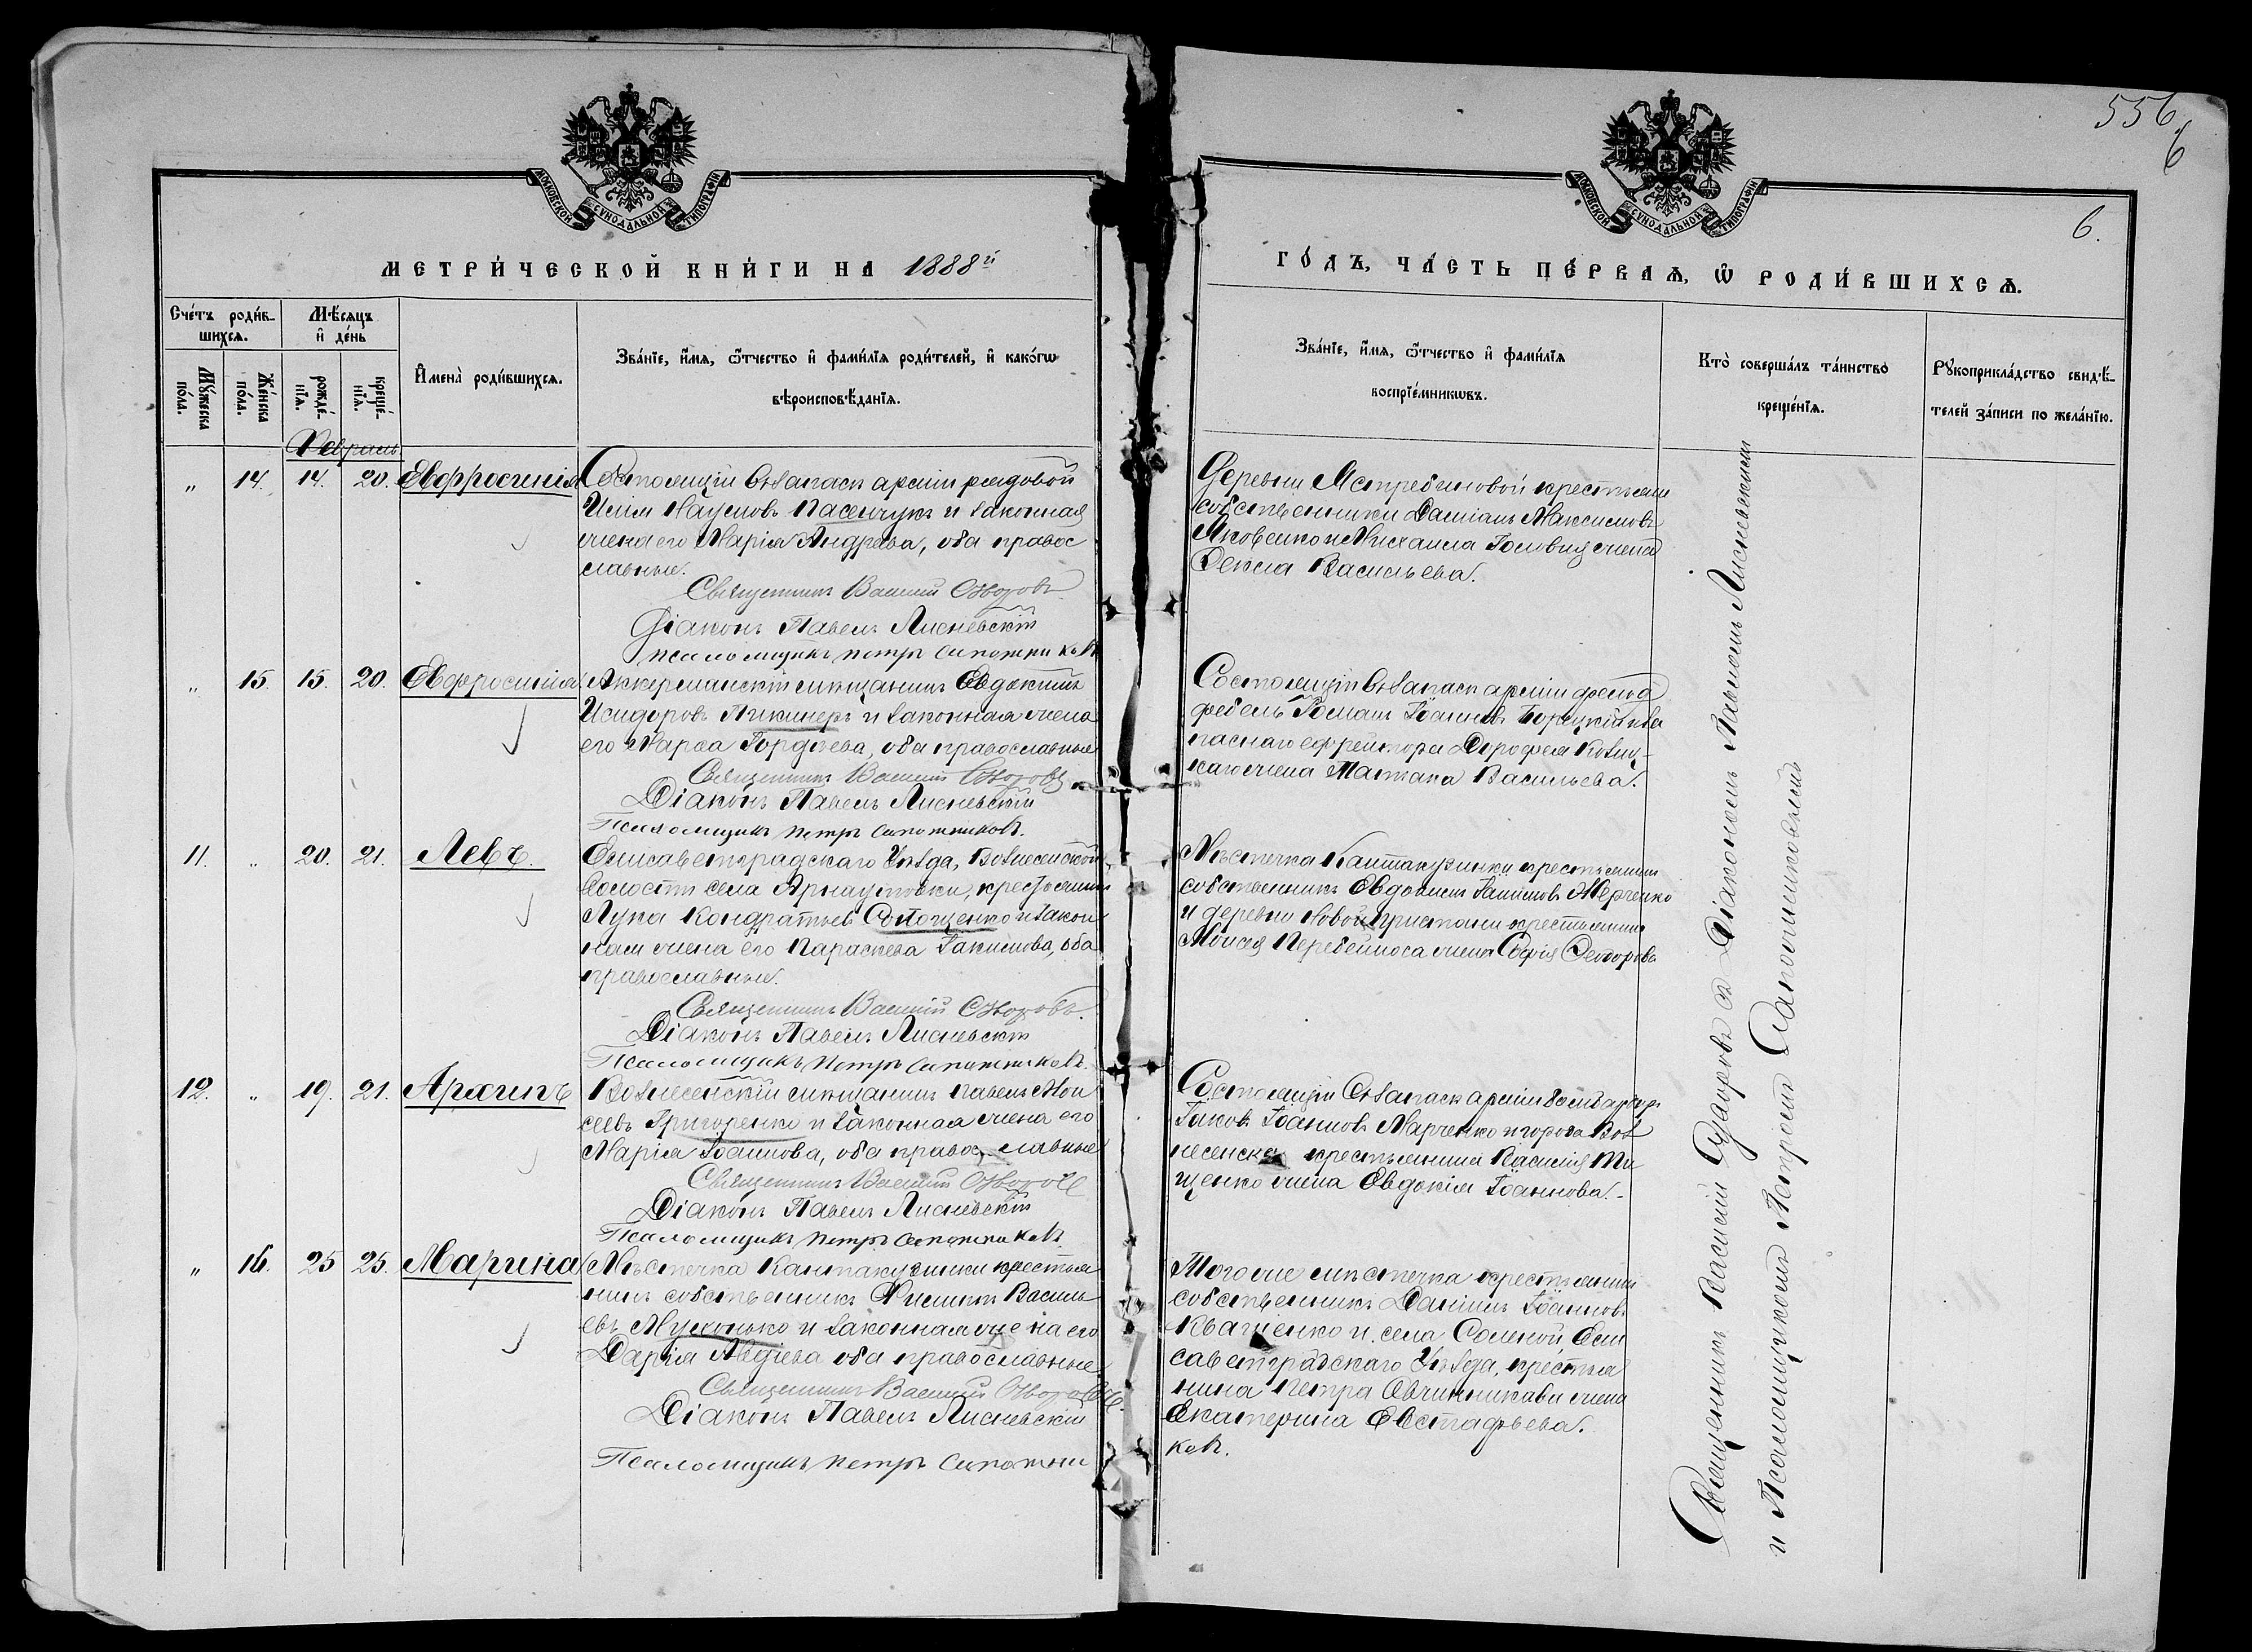 556
6
6.
МОСКОВСКОЙ СѴНОДАЛЬНОЙ ТИПОГРАФІИ
МОСКОВСКОЙ СѴНОДАЛЬНОЙ ТИПОГРАФІИ
МЕТРИ́ЧЕСКОЙ КНИ́ГИ НА 1888й
ГО́ДЪ, ЧА́СТЬ ПЕ́РВАѦ, Ѽ РОДИ́ВШИХСѦ.
Сче́тъ роди́в-
шихсѧ.
Мѣ́сѧцъ
и҆ де́нь
Мꙋ́жеска
по́ла.
Же́нска
по́ла.
рожде́-
нїѧ.
креще́-
нїѧ.
И҆мена̀ роди́вшихсѧ.
Зва́нїе, и҆́мѧ, ѻ҆́тчество и҆ фами́лїѧ роди́телей, и҆ како́гѡ
вѣроисповѣ́данїѧ.
Зва́нїе, и҆́мѧ, ѻ҆́тчество и҆ фами́лїѧ
воспрїе́мникѡвъ.
Кто̀ соверша́лъ та́инство
креще́нїѧ.
Рꙋкоприкла́дство свидѣ́-
телей за́писи по жела́нїю.
Февраль.
„ 14. 14. 20. Евфросинія
Состоящій въ запасѣ арміи рядовой
Наумовъ Пасенчукъ и законная
жена его Марія Андреева, оба правос
славные.
Священникъ Василій
Діаконъ Павелъ Лисневскій
псаломщикъ петръ сапожниковъ
Деревни Ястребиновой крестьян
собственники Даміанъ Максимовъ
Яковенко и Михаила Головня жена
Васильева.
„ 15. 15. 20. Евфросинія.
Аккерманскій мѣщанинъ Евдокимъ
Исидоровъ Пикинеръ и законная жена
его Марѳа Гордѣева, оба православные
Священникъ Василій
Діаконъ Павелъ Лисневскій
Псаломщикъ петръ сапожниковъ.
Состоящій въ запасѣ арміи фельд
фебель Романъ Іоанновъ
паснаго ефрейтора Дорофея
жена Татіана Васильева.
11. „ 20. 21. Левъ.
Елисаветградскаго Уѣзда, Вознесенской
волости села Арнаутовки, крестьянинъ
Лука Кондратьевъ и закон
ная жена его Параскева Іакимова, оба
православные.
Священникъ Василій
Діаконъ Павелъ Лисневскій
Псаломщикъ петръ сапожниковъ.
Мѣстечка Кантакузинки крестьянинъ
собственникъ Евдокимъ
и деревни Новой пристани крестьянина
Моисея Перебейноса жена Софія Ѳеодорова
12. „ 19. 21. Архипъ
Вознесенскій мѣщанинъ Павелъ Мои
сеевъ Григоренко и законная жена его
Марія Іоаннова, оба правос славные
Священникъ Василій
Діаконъ Павелъ Лисневскій
Псаломщикъ петръ сапожниковъ.
Состоящій въ запасѣ арміи бомбардиръ
Іаковъ Іоанновъ Марченко и города Воз
несенска крестьянина Василія Ти
щенко жена Евдокія Іоаннова.-
„ 16. 25 25. Марина
Мѣстечка Кантакузинки крестья
нинъ собственникъ Филиппъ Василь
евъ и законная жена его
Дарія Авдіева оба православные
Священникъ Василій
Діаконъ Павелъ Лисневскій
Псаломщикъ петръ сапожни
Того же мѣстечка крестьянинъ
собственникъ Даніилъ Іоанновъ
Квашенко и села Соленой, Ели
саветградскаго Уѣзда, крестья
нина Петра Овчинникова жена
Екатерина Евстафьева.
ковъ.
Священникъ Василій съ Діакономъ Павломъ Лисневскимъ
и Псаломщикомъ Петромъ Сапожниковымъ